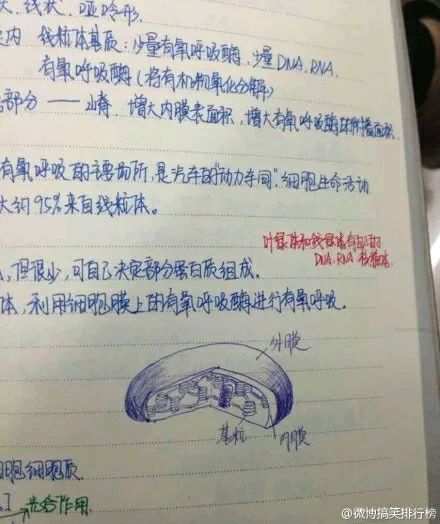 状、线状、哑铃形
内 线粒体基质：少量有氧呼吸酶，少量DNA、RNA.
有氧呼吸酶（将有机物氧化分解）
部分——嵴，增大内膜表面积，增大有氧呼吸酶附着面积.
有氧呼吸的主要场所，是汽车的"动力车间".细胞生命活动
大约95%来自线粒体。
叶绿体和线粒体有自己的
DNA、RNA、核糖体.
，但很少，可自己决定部分蛋白质组成.
体，利用细胞膜上的有氧呼吸酶进行有氧呼吸。
外膜
基粒
内膜
胞细胞质.
光合作用
@微博搞笑排行榜